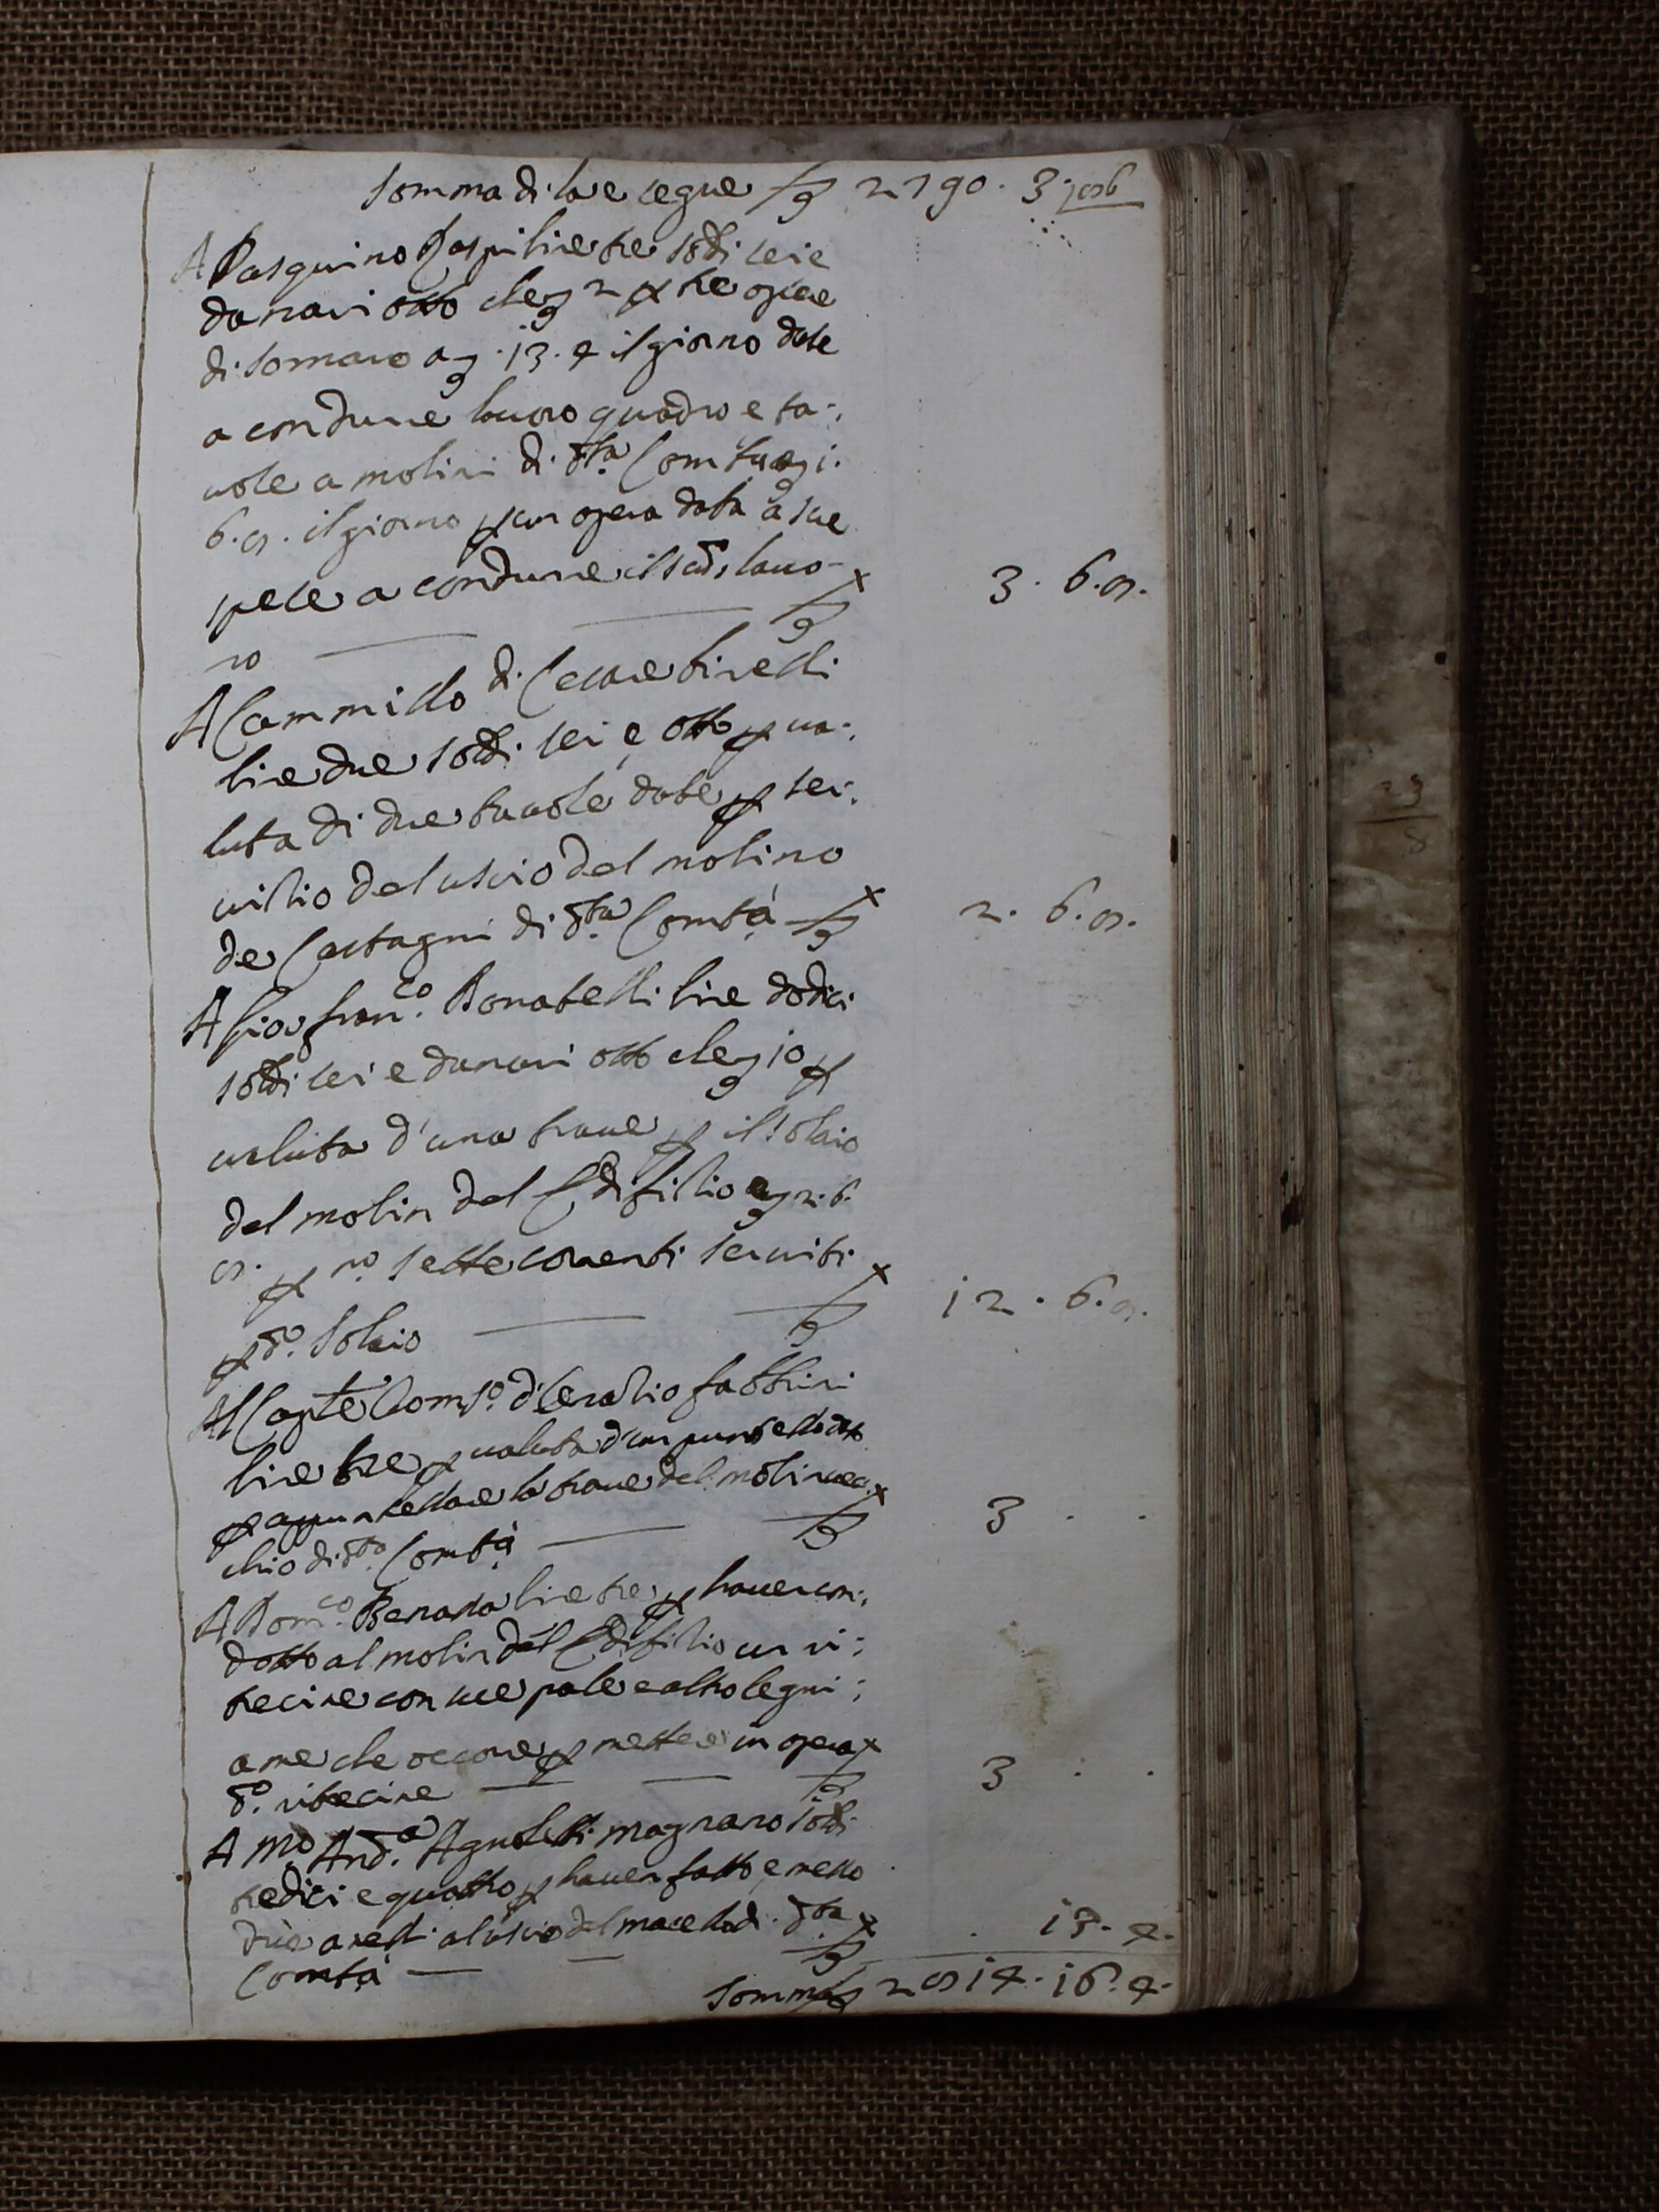 somma di la e segue £ 2790. 3
A Pasquino Raspi lire tre soldi sei e
danari otto che £ 2 p tre opere
di somaro a £ .13.4 il giorno date
a condurre lauoro quadro e ta-
uole a molini di dta Comtà e £ 1.
6.8. il giorno p un opera data a sue
spese a condurre il sudo lauo-
ro £ 3. 6. 8.
A Cammillo di Cesare
lire due soldi sei e otto p ua-
luta di due tauole date p ser-
uitio del uscio del molino
de Castagni di dta Comtà £ 2. 6. 8.
A Gio: franco Donatelli lire dodici
soldi sei e danari otto che £ 10 p
ualuta d'una traue p il solaio
del molin del Edifitio e £ 2.6.
8. p no sette correnti seruiti
p do solaio £ 12. 6. 8.
Al Capte d'Oratio fabbrini
lire tre p ualuta d'un puntello dato
p appuntellare la traue del molin uec-
chio di dta Comtà £ 3 . .
A Domco lire tre p hauer con-
dotto al molin del Edifitio un ri-
trecine con sue pale e altro legni-
ame che occorre p mettere in opera
do ritrecine £ 3 . .
A Mo Anda Agnoletti magnano soldi
tredici e quattro p hauer fatto e messo
due anelli al uscio del macello di dta
Comtà £ . 13. 4.
Somma £ 2814. 16. 4.